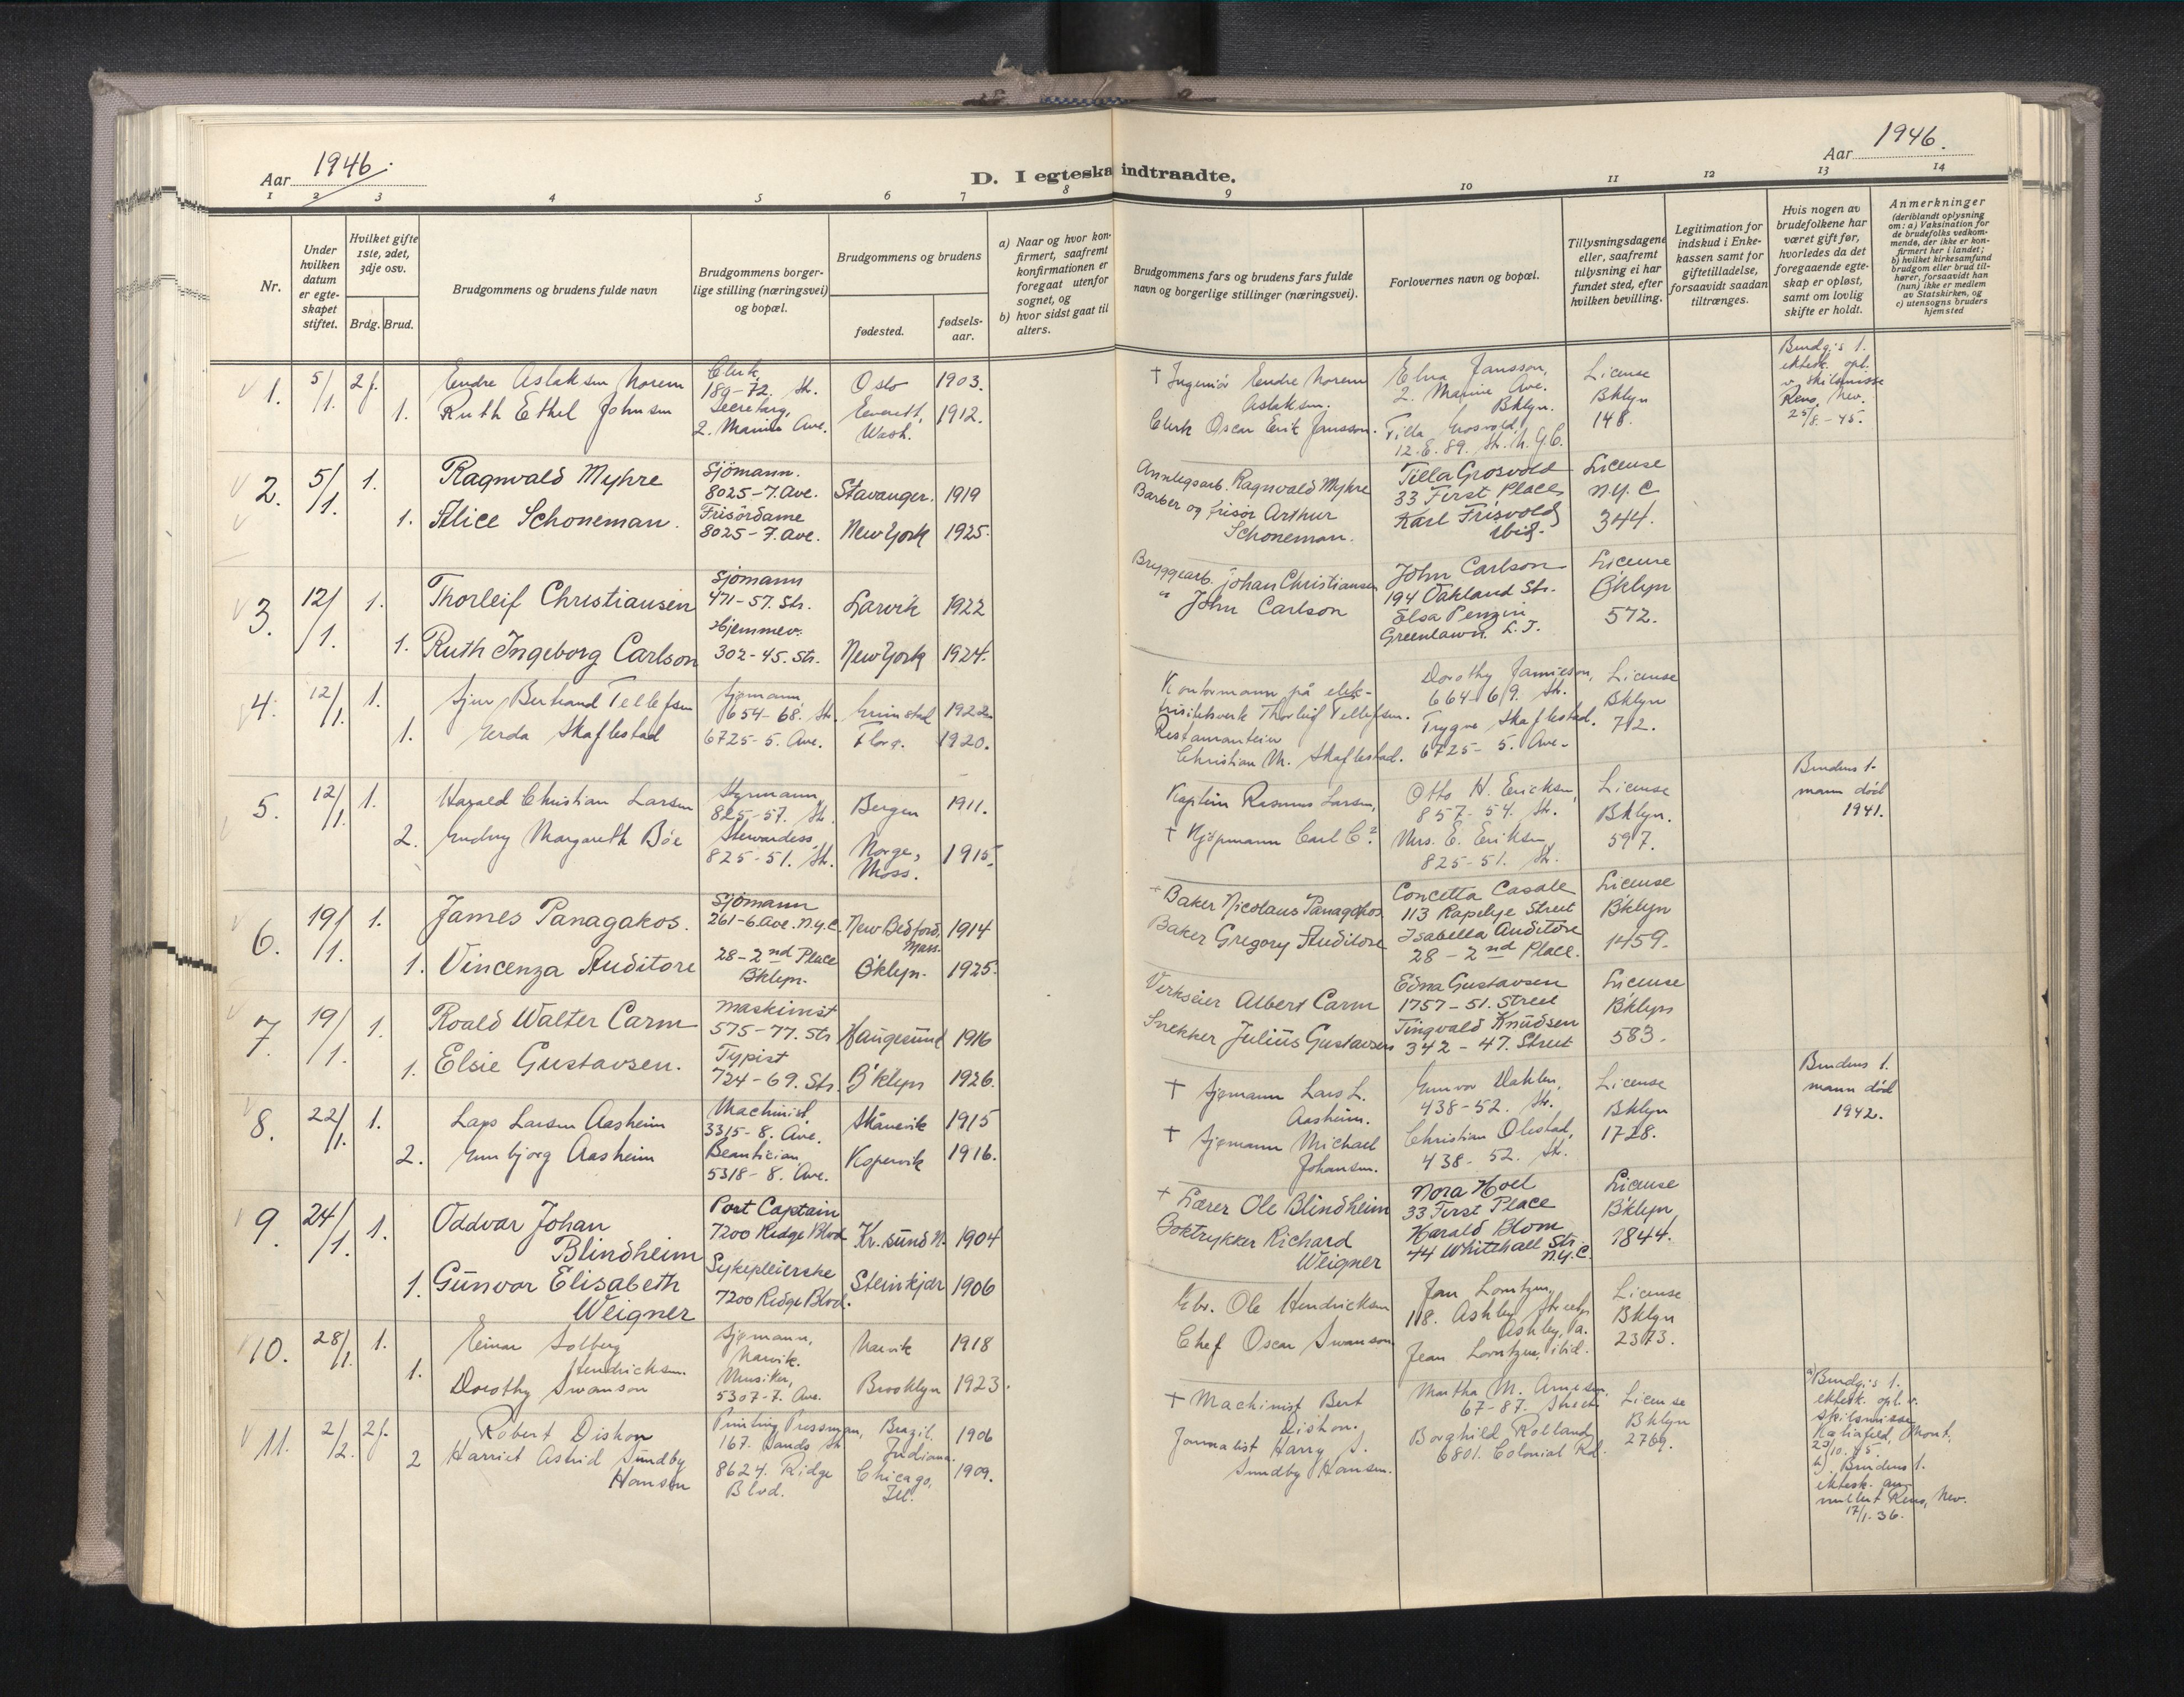 Aar 1946.
D. I egteska indtraadte.
Aar 1946.
1 2 3 4 5 6 7 8 9 10 11 12 13 14
Nr.
Under hvilken datum er egte-skapet stiftet.
Hvilket gifte 1ste, 2det, 3dje osv.
Brdg. Brud.
Brudgommens og brudens fulde navn
Brudgommens borger-
lige stilling (næringsvei)
og bopæl.
Brudgommens og brudens
fødested.
fødsels-
aar.
a) Naar og hvor kon-
firmert, saafremt
konfirmationen er
foregaat utenfor
sognet, og
b) hvor sidst gaat til
alters.
Brudgommens fars og brudens fars fulde
navn og borgerlige stillinger (næringsvei).
Forlovernes navn og bopæl.
Tillysningsdagene
eller, saafremt
tillysning ei har
fundet sted, efter
hvilken bevilling.
Legitimation for
indskud i Enke-
kassen samt for
giftetilladelse,
forsaavidt saadan
tiltrænges.
Hvis nogen av
brudefolkene har
været gift før,
hvorledes da det
foregaaende egte-
skap er opløst,
samt om lovlig
skifte er holdt.
Anmerkninger
(deriblandt oplysning
om: a) Vaksination for
de brudefolks vedkom-
mende, der ikke er kon-
firmert her i landet;
b) hvilket kirkesamfund
brudgom eller brud til-
hører, forsaavidt han
(hun) ikke er medlem
av Statskirken, og
c) utensogns bruders
hjemsted
1. 5/1. 2 f. Endre Aslaksen Norem
Clerk,
189-72. Str.
Oslo 1903.
1. Ruth Ethel Johnsen
Secretary,
2. Marine Ave.
Everett, Wash. 1912.
† Ingeniør Endre Norem
Aslaksen.
Clerk Oscar Erik Jansson.
Elna Jansson,
2. Marine Ave.
Bklyn.
Tilla Grosvold,
12. E. 89. Str. N.Y.C.
License
Bklyn
148.
Brudg.s 1.
ektesk. opl.
v. skilsmisse
Reno, Nev.
25/8.-45.
2. 5/1. 1. Ragnvald Myhre
Sjömann.
8025-7. Ave.
Stavanger. 1919
1. Alice Schoneman.
Frisördame
8025-7. Ave.
New York 1925.
Anleggsarb. Ragnvald Myhre
Barber og frisör Arthur
Schoneman.
Tilla Grosvold
33 First Place
Karl Frisvold
ibid.
License
N.Y.C
344.
3. 12/1. 1. Thorleif Christiansen
Sjömann
471-57. Str.
Larvik 1922
1. Ruth Ingeborg Carlson
Hjemmev.
302-45. Str.
New York 1924.
Bryggearb. Johan Christiansen
" John Carlson
John Carlson
194 Oakland Str.
Elsa Penzin
Greenlawn L.I.
License
B'klyn
572.
4. 12/1. 1. Bertrand Tellefsen
Sjømann,
654-68. Str.
Grimstad 1922
1. Gerda Skaflestad
6725-5. Ave.
Florø. 1920.
Kontormann på elek-
trisitetsverk Thorleif Tellefsen.
Restauranteier
Christian M. Skaflestad.
Dorothy Jamieson,
664-69. Str.
Trygve Skaflestad.
6725-5. Ave.
License
Bklyn
712.
5. 12/1. 1. Harald Christian Larsen
Styrmann,
825-57. Str.
Bergen 1911.
2. Margareth Böe
Stewardess,
825-51. Str.
Norge,
Moss. 1915.
Kaptein Rasmus Larsen,
† Kjøpmann Carl C.
Otto H. Ericksen,
857-54. Str.
Mrs. E. Eriksen,
825-51. Str.
License
Bklyn.
597.
Brudens 1.
mann död
1941.
6. 19/1. 1. James Panagakos.
Sjömann
261-6 Ave. N.Y.C.
New Bedford, Mass. 1914
1. Vincenza Auditore
28-2nd Place
B'klyn.
B'klyn. 1925.
† Baker Nicolaus Panagakos
Baker Gregory Auditore
Concetta Casale
113 Rapelye Street
Isabella Auditore
28-2nd Place.
License
B'klyn
1459.
7. 19/1. 1. Roald Walter Carm
Maskinist
575-77. Str
Haugesund 1916
1. Elsie Gustavsen.
Typist
724-69. Str.
B'klyn 1926.
Verkseier Albert Carm
Snekker Julius Gustavsen
Edna Gustavsen
1757-51. Street
Tingvald Knudsen
342-47. Street
License
B'klyn
583.
8. 22/1. 1. Lars Larsen Aasheim
Machinist,
3315-8. Ave.
Skånevik 1915
2. Gunbjørg Aasheim
Beautician
5318-8. Ave.
Kopervik 1916.
† Sjømann Lars L.
Aasheim.
† Sjømann Michael
Johansen.
Gunvor Dahlen,
438-52. Str.
Christian Olestad,
438-52. Str.
License
Bklyn
1728.
Brudens 1.
mann død
1942.
9. 24/1. 1. Oddvar Johan
Blindheim
Port Captain
7200 Ridge Blvd
Kr. sund N. 1904
1. Gunvor Elisabeth
Weigner
Sykepleierske
7200 Ridge Blvd.
Steinkjær 1906
† Lærer Ole Blindheim
Boktrykker Richard
Weigner
Nora Hoel
33 First Place
Harald Blom
44 Whitehall Str.
N.Y.C.
License
B'klyn
1844.
10. 28/1. 1. Einar Solberg
Hendricksen
Sjømann,
Narvik.
Narvik 1918
1. Dorothy Swanson
Musiker,
5307-7. Ave.
Brooklyn 1923.
Ole Hendricksen
Chef Oscar Swanson
118. Ashby Street,
Ashby,
Jean ibid.
License
Bklyn
2373.
11. 2/2. 2 f. Robert Dishon
Printing Pressman,
167. Sands Str
Brazil, Indiana. 1906
2 Harriet Astrid Sundby
Hansen
8624. Ridge
Blvd.
Chicago,
Ill. 1909.
† Machinist Bert
Dishon.
Journalist Harry S.
Sundby Hansen.
Martha M. Arnesen,
67-87. Street
Borghild Rolland,
6801. Colonial Rd.
License
Bklyn
2769.
a) Brudg.s 1.
ektesk. opl. v.
skilsmisse
Mont.
23/10.45.
b) Brudens 1.
ektesk. an-
nullert Reno, Nev.
17/1.36.